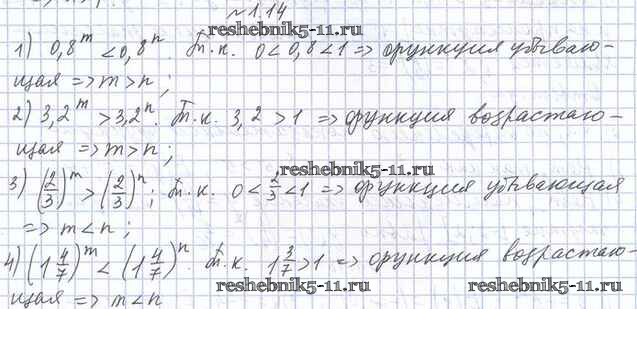 №1.14
reshebnik5-11.ru
1) 0,8^m < 0,8^n т.к. 0 < 0,8 < 1 => функция убываю-
щая => m > n ;
2) 3,2^m > 3,2^n. т.к. 3,2 > 1 => функция возрастаю-
щая => m > n ;
reshebnik5-11.ru
3) (2/3)^m > (2/3)^n ; т.к. 0 < 2/3 < 1 => функция убывающая
=> m < n ;
4) (1 4/7)^m < (1 4/7)^n. т.к. 1 3/7 > 1 => функция возрастаю-
щая => m < n
reshebnik5-11.ru reshebnik5-11.ru